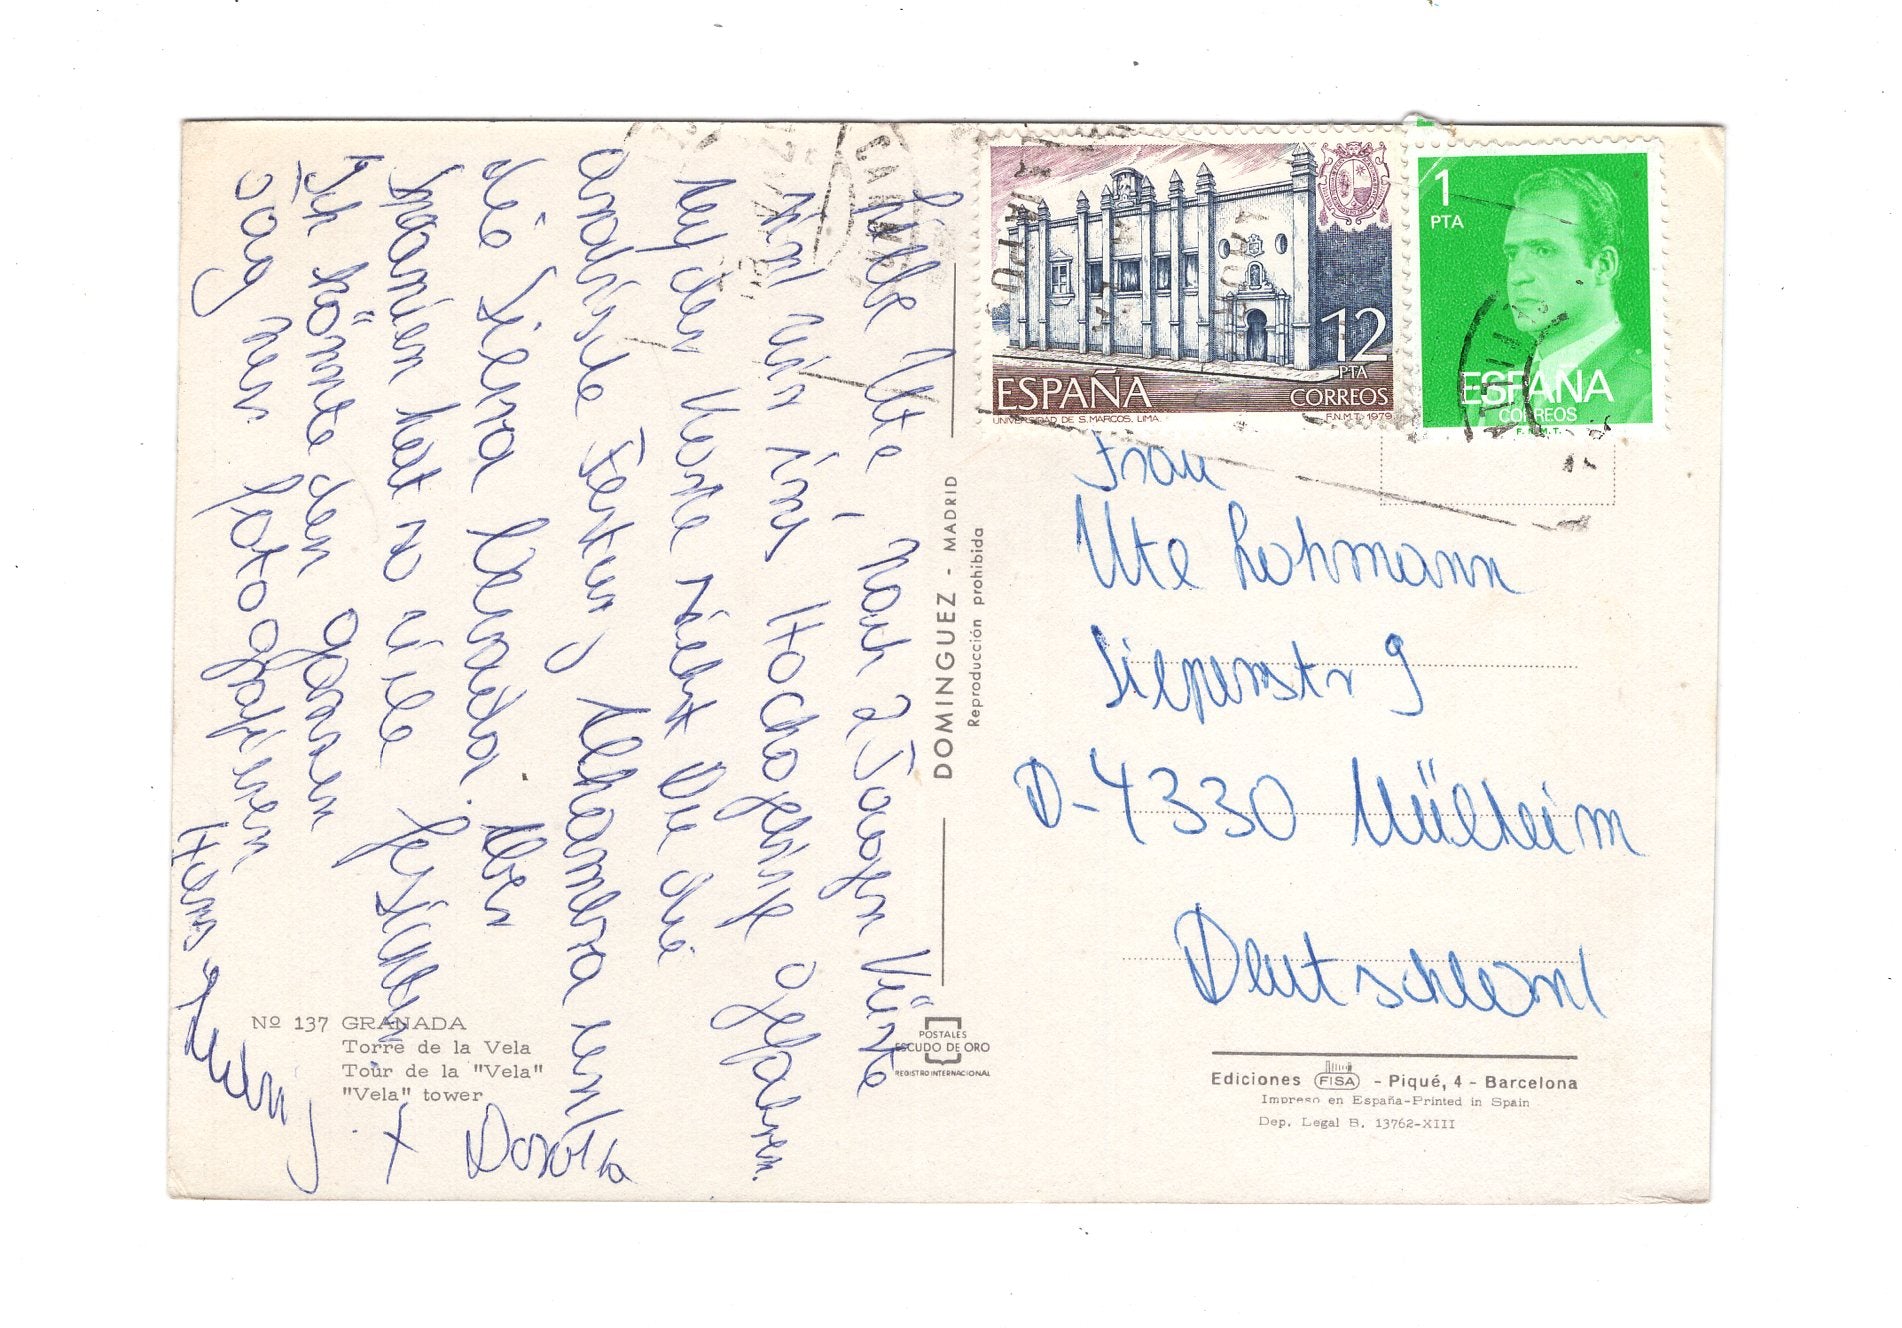 Liebe Ute, Nach 2 Tagen Küste
sind wir ins Hochgebirge gefahren.
Auf der Karte siehst Du die
arabische Festung Alhambra und
die Sierra Nevada. Aber
Spanien hat so viele Gesichter.
Ich könnte den ganzen
Tag nur fotografieren
+ Dorotha
Nº 137 GRANADA
Torre de la Vela
Tour de la "Vela"
"Vela" tower
DOMINGUEZ - MADRID
Reproducción prohibida
POSTALES
ESCUDO DE ORO
REGISTRO INTERNACIONAL
12
PTA
ESPAÑA CORREOS
UNIVERSIDAD DE S. MARCOS. LIMA. F.N.M.T. 1979
1
PTA
ESPAÑA
CORREOS
F.N.M.T.
Frau
Ute Lohmann
Siepenstr 9
D-4330 Mülheim
Deutschland
Ediciones FISA - Piqué, 4 - Barcelona
Impreso en España-Printed in Spain
Dep. Legal B. 13762-XIII